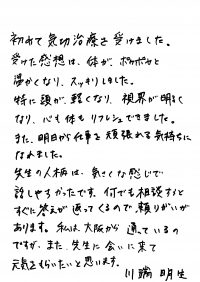 初めて気功治療を受けました。
受けた感想は、体が、ポカポカと
温かくなり、スッキリしました。
特に頭が、軽くなり、視界が明る
くなり、心も体もリフレッシュできました。
また、明日から仕事を頑張れる気持ちに
なれました。
先生の人柄は、気さくな感じで
話しやすかったです。何でも相談すると
すぐに答えが返ってくるので、頼りがいが
あります。私は、大阪から通っているの
ですが、また、先生に会いに来て
元気をもらいたいと思います。
川端 明生